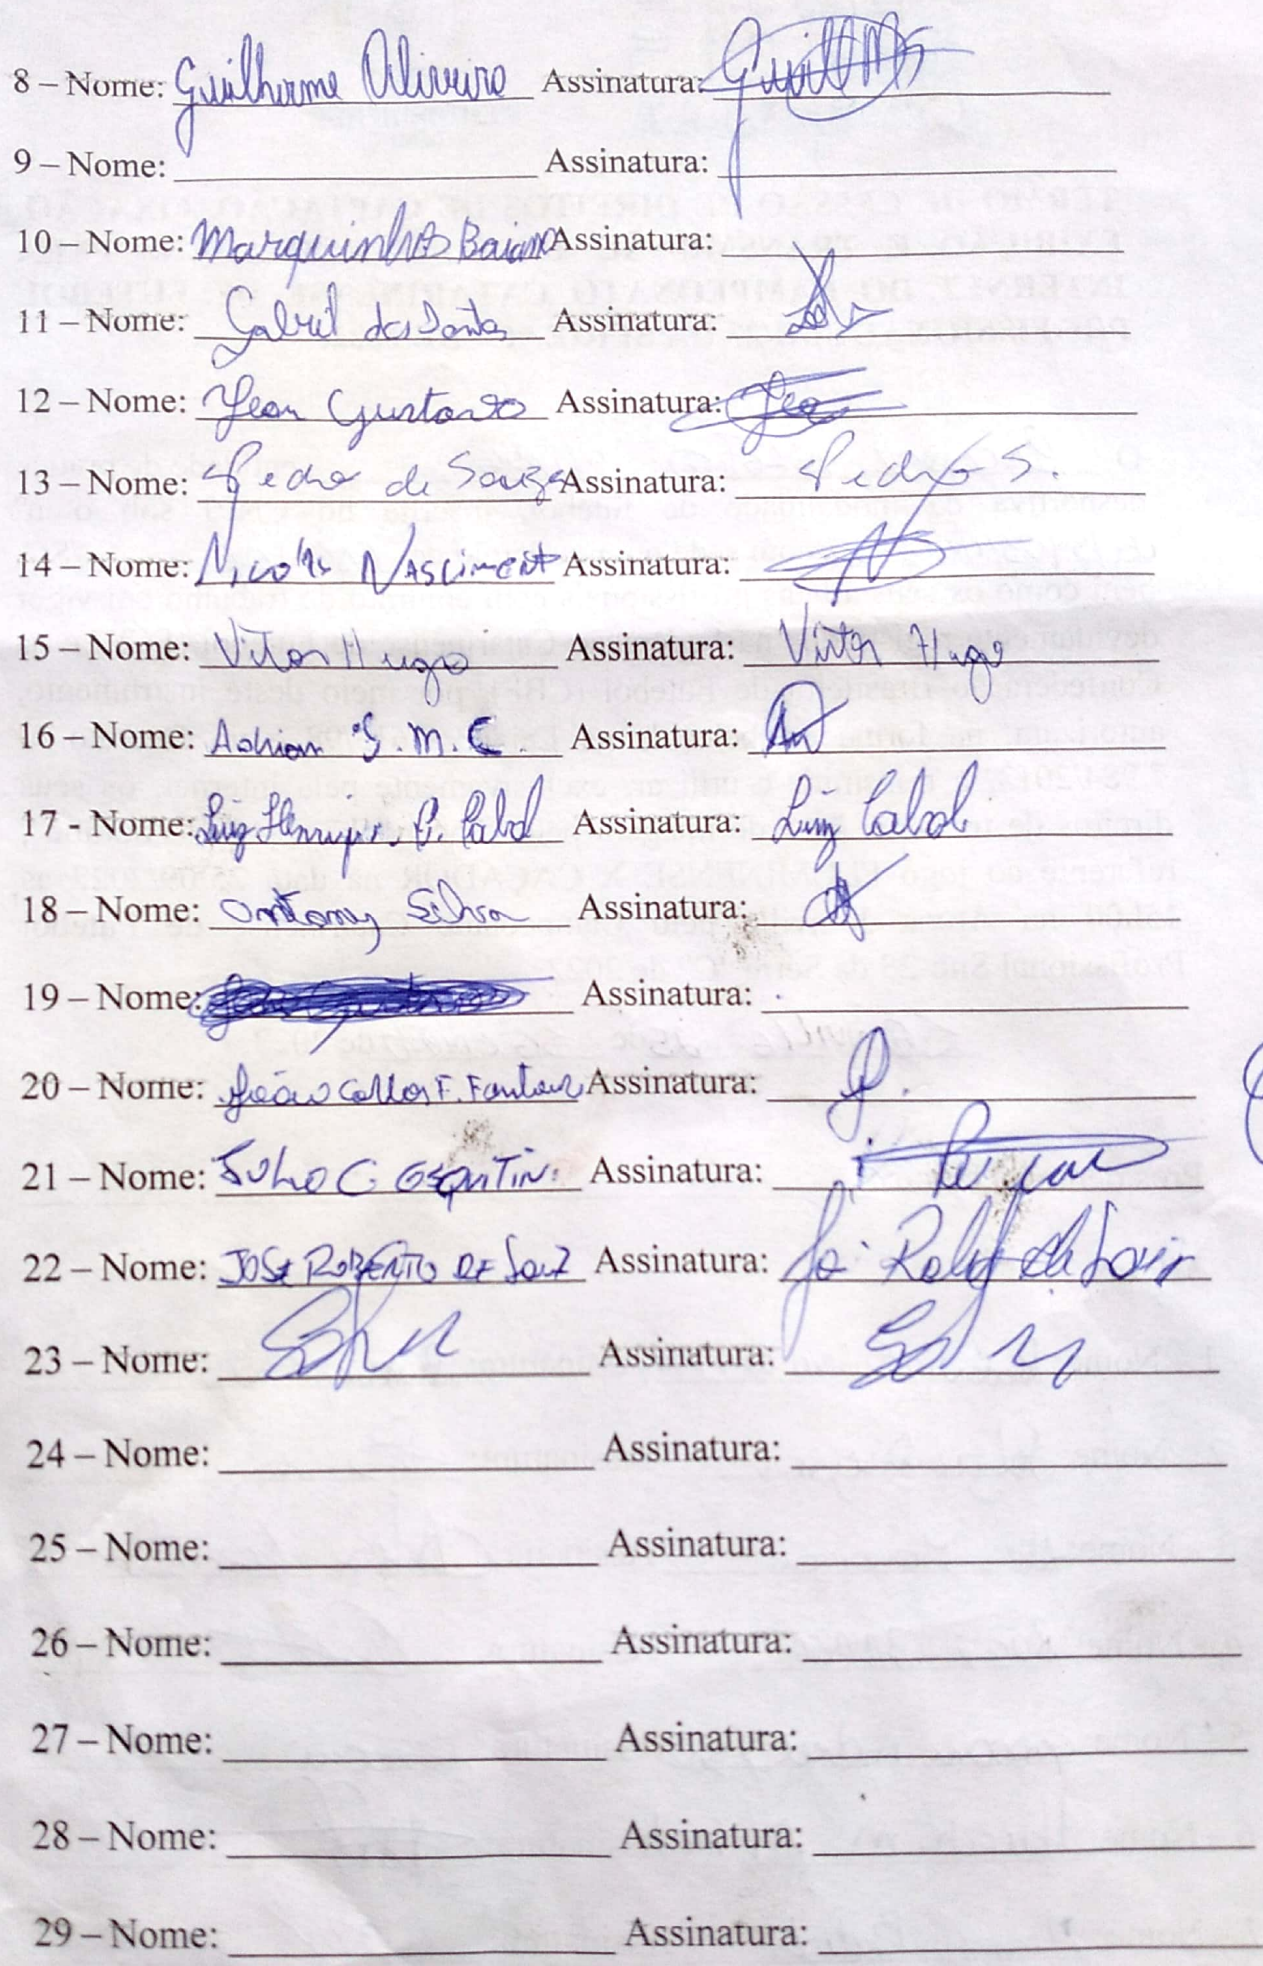 8 – Nome: Guilherme Oliveira Assinatura:
9 – Nome: Assinatura:
10 – Nome: Marquinhos Baiano Assinatura:
11 – Nome: Gabriel dos Santos Assinatura:
12 – Nome: Jean Gustavo Assinatura: Jea
13 – Nome: Pedro de Souza Assinatura: Pedro S.
14 – Nome: Nicolas Nascimento Assinatura:
15 – Nome: Vitor Hugo Assinatura: Vitor Hugo
16 – Nome: Adrian G. M. C. Assinatura:
17 - Nome: Luiz Henrique P. Cabral Assinatura: Luiz Cabral
18 – Nome: Antony Silva Assinatura:
19 – Nome: Assinatura:
20 – Nome: João Carlos F. Assinatura:
21 – Nome: Julio C. Assinatura:
22 – Nome: JOSE ROBERTO DE Assinatura:
23 – Nome: Assinatura:
24 – Nome: Assinatura:
25 – Nome: Assinatura:
26 – Nome: Assinatura:
27 – Nome: Assinatura:
28 – Nome: Assinatura:
29 – Nome: Assinatura: